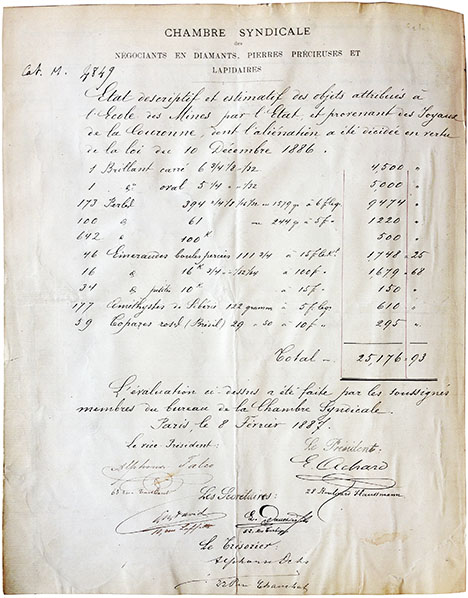 CHAMBRE SYNDICALE
des
NÉGOCIANTS EN DIAMANTS, PIERRES PRÉCIEUSES ET
LAPIDAIRES
Cat. M. 4849
Etat descriptif et estimatif des objets attribués à
l'Ecole des Mines par l'Etat, et provenant des Joyaux
de la Couronne, dont l'aliénation a été décidée en vertu
de la loi du 10 Décembre 1886.
1 Brillant carré 6 3/4 1/8 1/32 4,500 "
1 do oval 5 1/4 1/32 5,000 "
173 Perles 394 1579 gr à 6f 9474 "
100 d 61 244 g à 5f 1220 "
642 d 100K 500 "
46 Emeraudes boules percées 111 3/4 à 15f le Kt 1748 25
16 d 16K à 100f 1679 68
34 d petites 10K à 15f 150 "
177 Améthystes de Sibérie 122 gramm à 5f 610 "
59 Topazes rosé (Brésil) 29 50 à 10f 295 "
Total 25,176 93
L'évaluation ci-dessus a été faite par les soussignés
membres du bureau de la Chambre Syndicale.
Paris, le 8 Février 1887.
Le vice Président: Le Président:
Alphonse Falco
Les Secrétaires: 21 Boulevard Haussmann
David
Le Trésorier
Alphonse